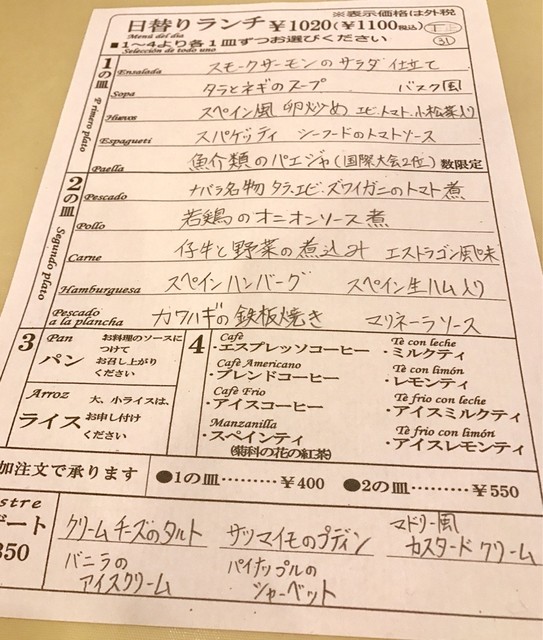 ※表示価格は外税
日替りランチ ¥1020(¥1100税込)
Menú del día
31
■1～4より各1皿ずつお選びください
Selección de todo uno
1の皿 Primero plato
Ensalada スモークサーモンのサラダ仕立て
Sopa タラとネギのスープ バスク風
Huevos スペイン風 卵炒め エビ、トマト、小松菜入り
Espagueti スパゲッティ シーフードのトマトソース
Paella 魚介類のパエジャ(国際大会2位)数限定
2の皿 Segundo plato
Pescado ナバラ名物 タラ、エビ、ズワイガニのトマト煮
Pollo 若鶏のオニオンソース煮
Carne 仔牛と野菜の煮込み エストラゴン風味
Hamburguesa スペインハンバーグ スペイン生ハム入り
Pescado a la plancha カワハギの鉄板焼き マリネーラソース
3
Pan
パン
お料理のソースに
つけて
お召し上がり
ください
Arroz
ライス
大、小ライスは、
お申し付け
ください
4
Café
・エスプレッソコーヒー
Café Americano
・ブレンドコーヒー
Café Frio
・アイスコーヒー
Manzanilla
・スペインティ
(菊科の花の紅茶)
Tè con leche
・ミルクティ
Tè con limón
・レモンティ
Tè frio con leche
・アイスミルクティ
Tè frio con limón
・アイスレモンティ
加注文で承ります ●1の皿………¥400 ●2の皿………¥550
stre
ート
350
クリームチーズのタルト サツマイモのプディン マドリー風 カスタードクリーム
バニラの アイスクリーム パイナップルの シャーベット